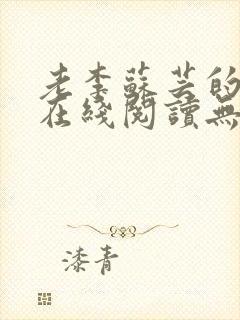 老李蘇芸的
在綫閱讀無
漆青